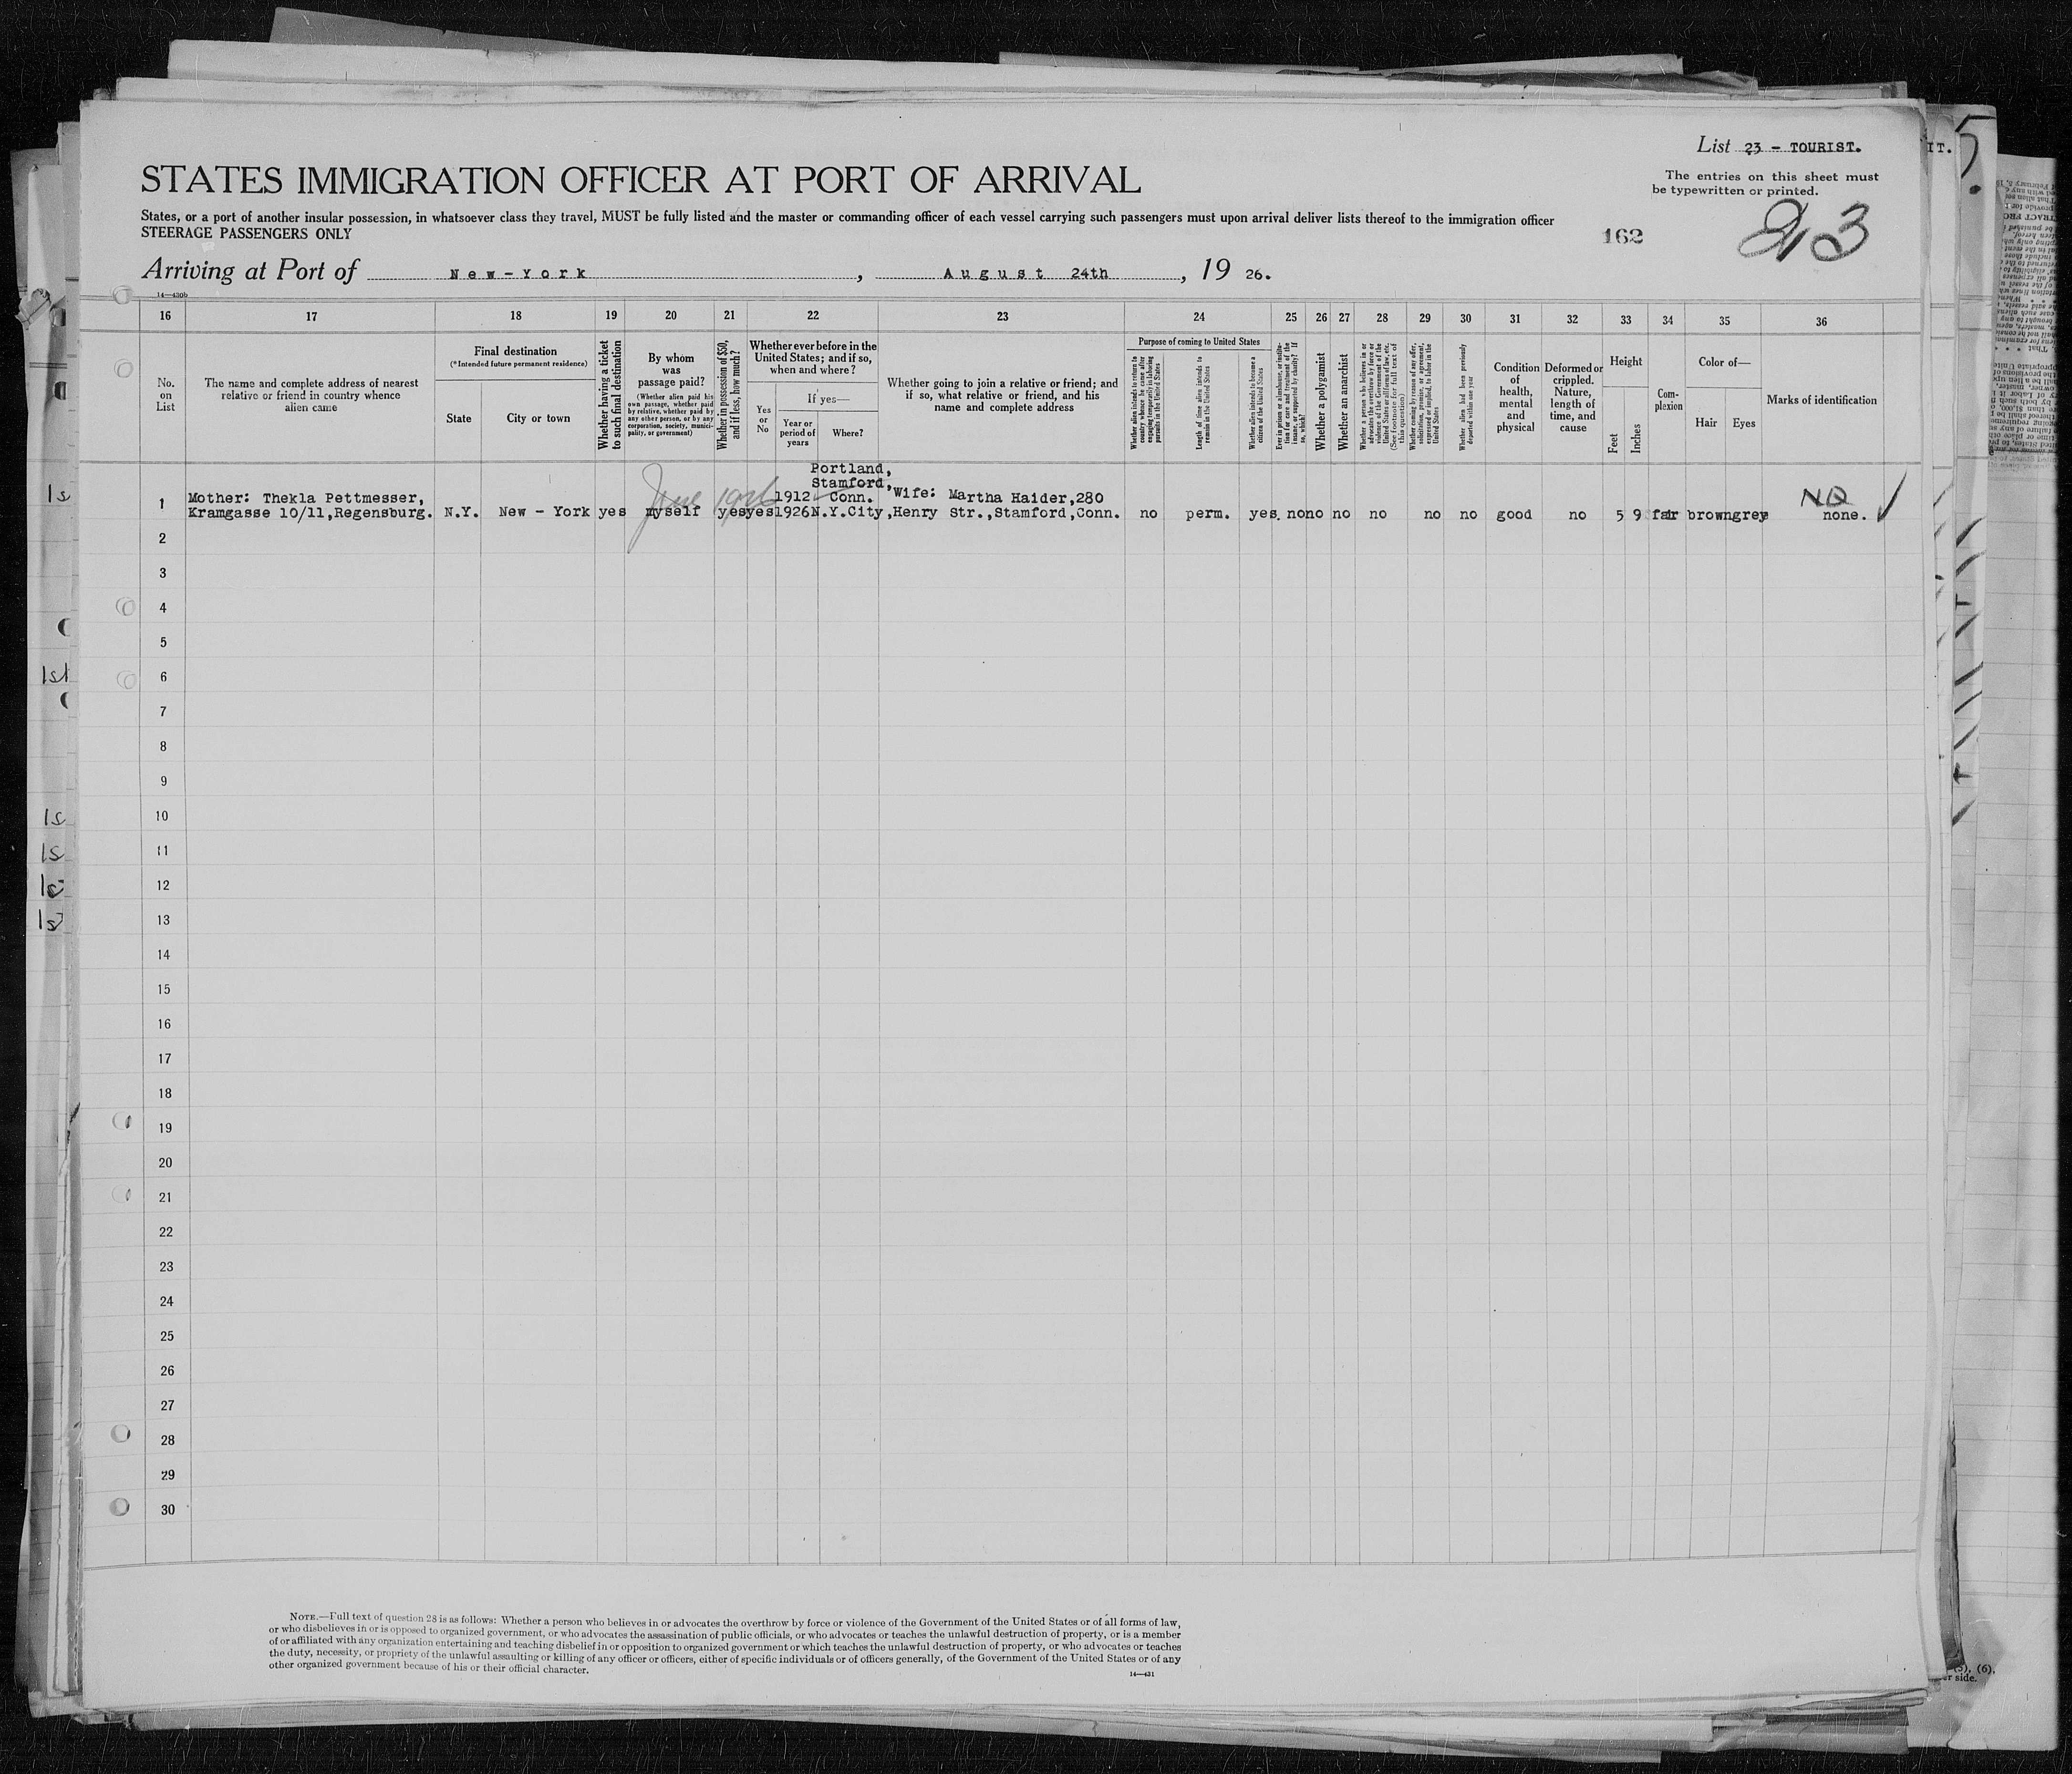 List 23 - TOURIST.
STATES IMMIGRATION OFFICER AT PORT OF ARRIVAL
The entries on this sheet must
be typewritten or printed.
States, or a port of another insular possession, in whatsoever class they travel, MUST be fully listed and the master or commanding officer of each vessel carrying such passengers must upon arrival deliver lists thereof to the immigration officer
STEERAGE PASSENGERS ONLY
162
23
Arriving at Port of New-York, August 24th, 19 26.
14—430b
16 17 18 19 20 21 22 23 24 25 26 27 28 29 30 31 32 33 34 35 36
No. on List
The name and complete address of nearest
relative or friend in country whence
alien came
Final destination
(*Intended future permanent residence)
State
City or town
Whether having a ticket
to such final destination
By whom
was
passage paid?
(Whether alien paid his
own passage, whether paid
by relative, whether paid by
any other person, or by any
corporation, society, munici-
pality, or government)
Whether in possession of $50,
and if less, how much?
Whether ever before in the
United States; and if so,
when and where?
Yes
or
No
If yes—
Year or
period of
years
Where?
Whether going to join a relative or friend; and
if so, what relative or friend, and his
name and complete address
Purpose of coming to United States
Whether alien intends to return to
country whence he came after
engaging temporarily in laboring
pursuits in the United States
Length of time alien intends to
remain in the United States
Whether alien intends to become a
citizen of the United States
Ever in prison or almshouse, or institu-
tion for care and treatment of the
insane, or supported by charity? If
so, which?
Whether a polygamist
Whether an anarchist
Whether a person who believes in or
advocates the overthrow by force or
violence of the Government of the
United States or all forms of law, etc.
(See footnote for full text of
this question)
Whether coming by reason of any offer,
solicitation, promise, or agreement,
expressed or implied, to labor in the
United States
Whether alien had been previously
deported within one year
Condition
of
health,
mental
and
physical
Deformed or
crippled.
Nature,
length of
time, and
cause
Height
Feet
Inches
Com-
plexion
Color of—
Hair
Eyes
Marks of identification
Portland,
Stamford,
1912 Conn.
June 1926
NQ
1 Mother: Thekla Pettmesser, Wife: Martha Haider,280
Kramgasse 10/11,Regensburg. N.Y. New - York yes myself yes yes 1926 N.Y.City, Henry Str.,Stamford,Conn. no perm. yes. no no no no no no good no 5 9 fair brown grey none.
2
3
4
5
6
7
8
9
10
11
12
13
14
15
16
17
18
19
20
21
22
23
24
25
26
27
28
29
30
NOTE.—Full text of question 28 is as follows: Whether a person who believes in or advocates the overthrow by force or violence of the Government of the United States or of all forms of law,
or who disbelieves in or is opposed to organized government, or who advocates the assassination of public officials, or who advocates or teaches the unlawful destruction of property, or is a member
of or affiliated with any organization entertaining and teaching disbelief in or opposition to organized government or which teaches the unlawful destruction of property, or who advocates or teaches
the duty, necessity, or propriety of the unlawful assaulting or killing of any officer or officers, either of specific individuals or of officers generally, of the Government of the United States or of any
other organized government because of his or their official character.
14—431